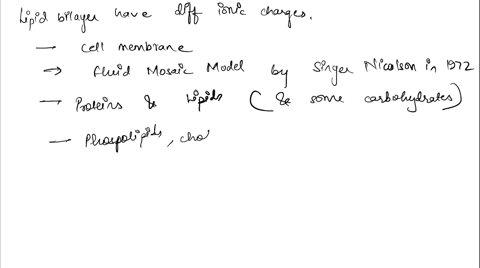 Lipid bilayer have diff ionic charges.
— Cell membrane
→ Fluid Mosaic Model by Singer Nicolson in 1972
→ Proteins & Lipids (& some carbohydrates)
— Phospolipids, cho